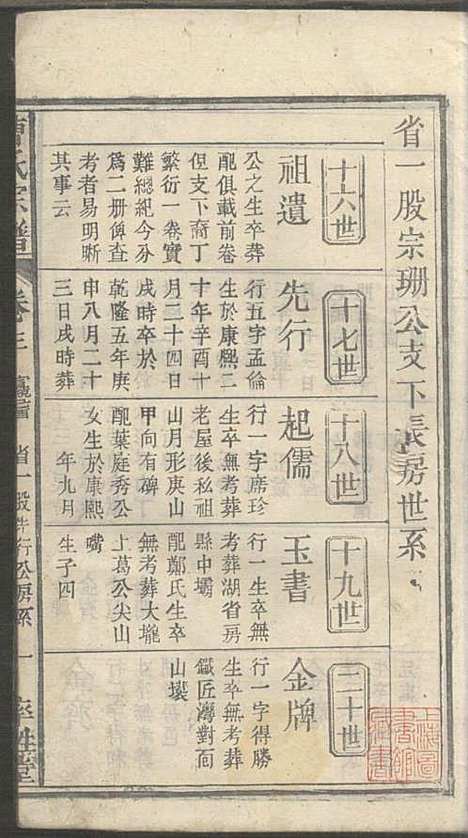 省一股宗珊公支下長房世系
十六世
祖遺
公之生卒葬
配俱載前卷
但支下裔丁
繁衍一卷實
難總紀今分
為二冊俾查
考者易明晰
其事云
十七世
先行
行五字孟倫
生於康熙二
十年辛酉十
月二十四日
戌時卒於
乾隆五年庚
申八月二十
三日戌時葬
十八世
起儒
行一字席珍
生卒無考葬
老屋後私祖
山月形庚山
甲向有碑
配葉庭秀公
女生於康熙
年九月
十九世
玉書
行一生卒無
考葬湖省房
縣中壩
配鄭氏生卒
無考葬大壠
上葛公尖山
嘴
生子四
二十世
金牌
行一字得勝
生卒無考葬
鐵匠灣對面
山塝
氏宗譜
卷三
省一股先行公房系
一
上海圖
書館
藏書